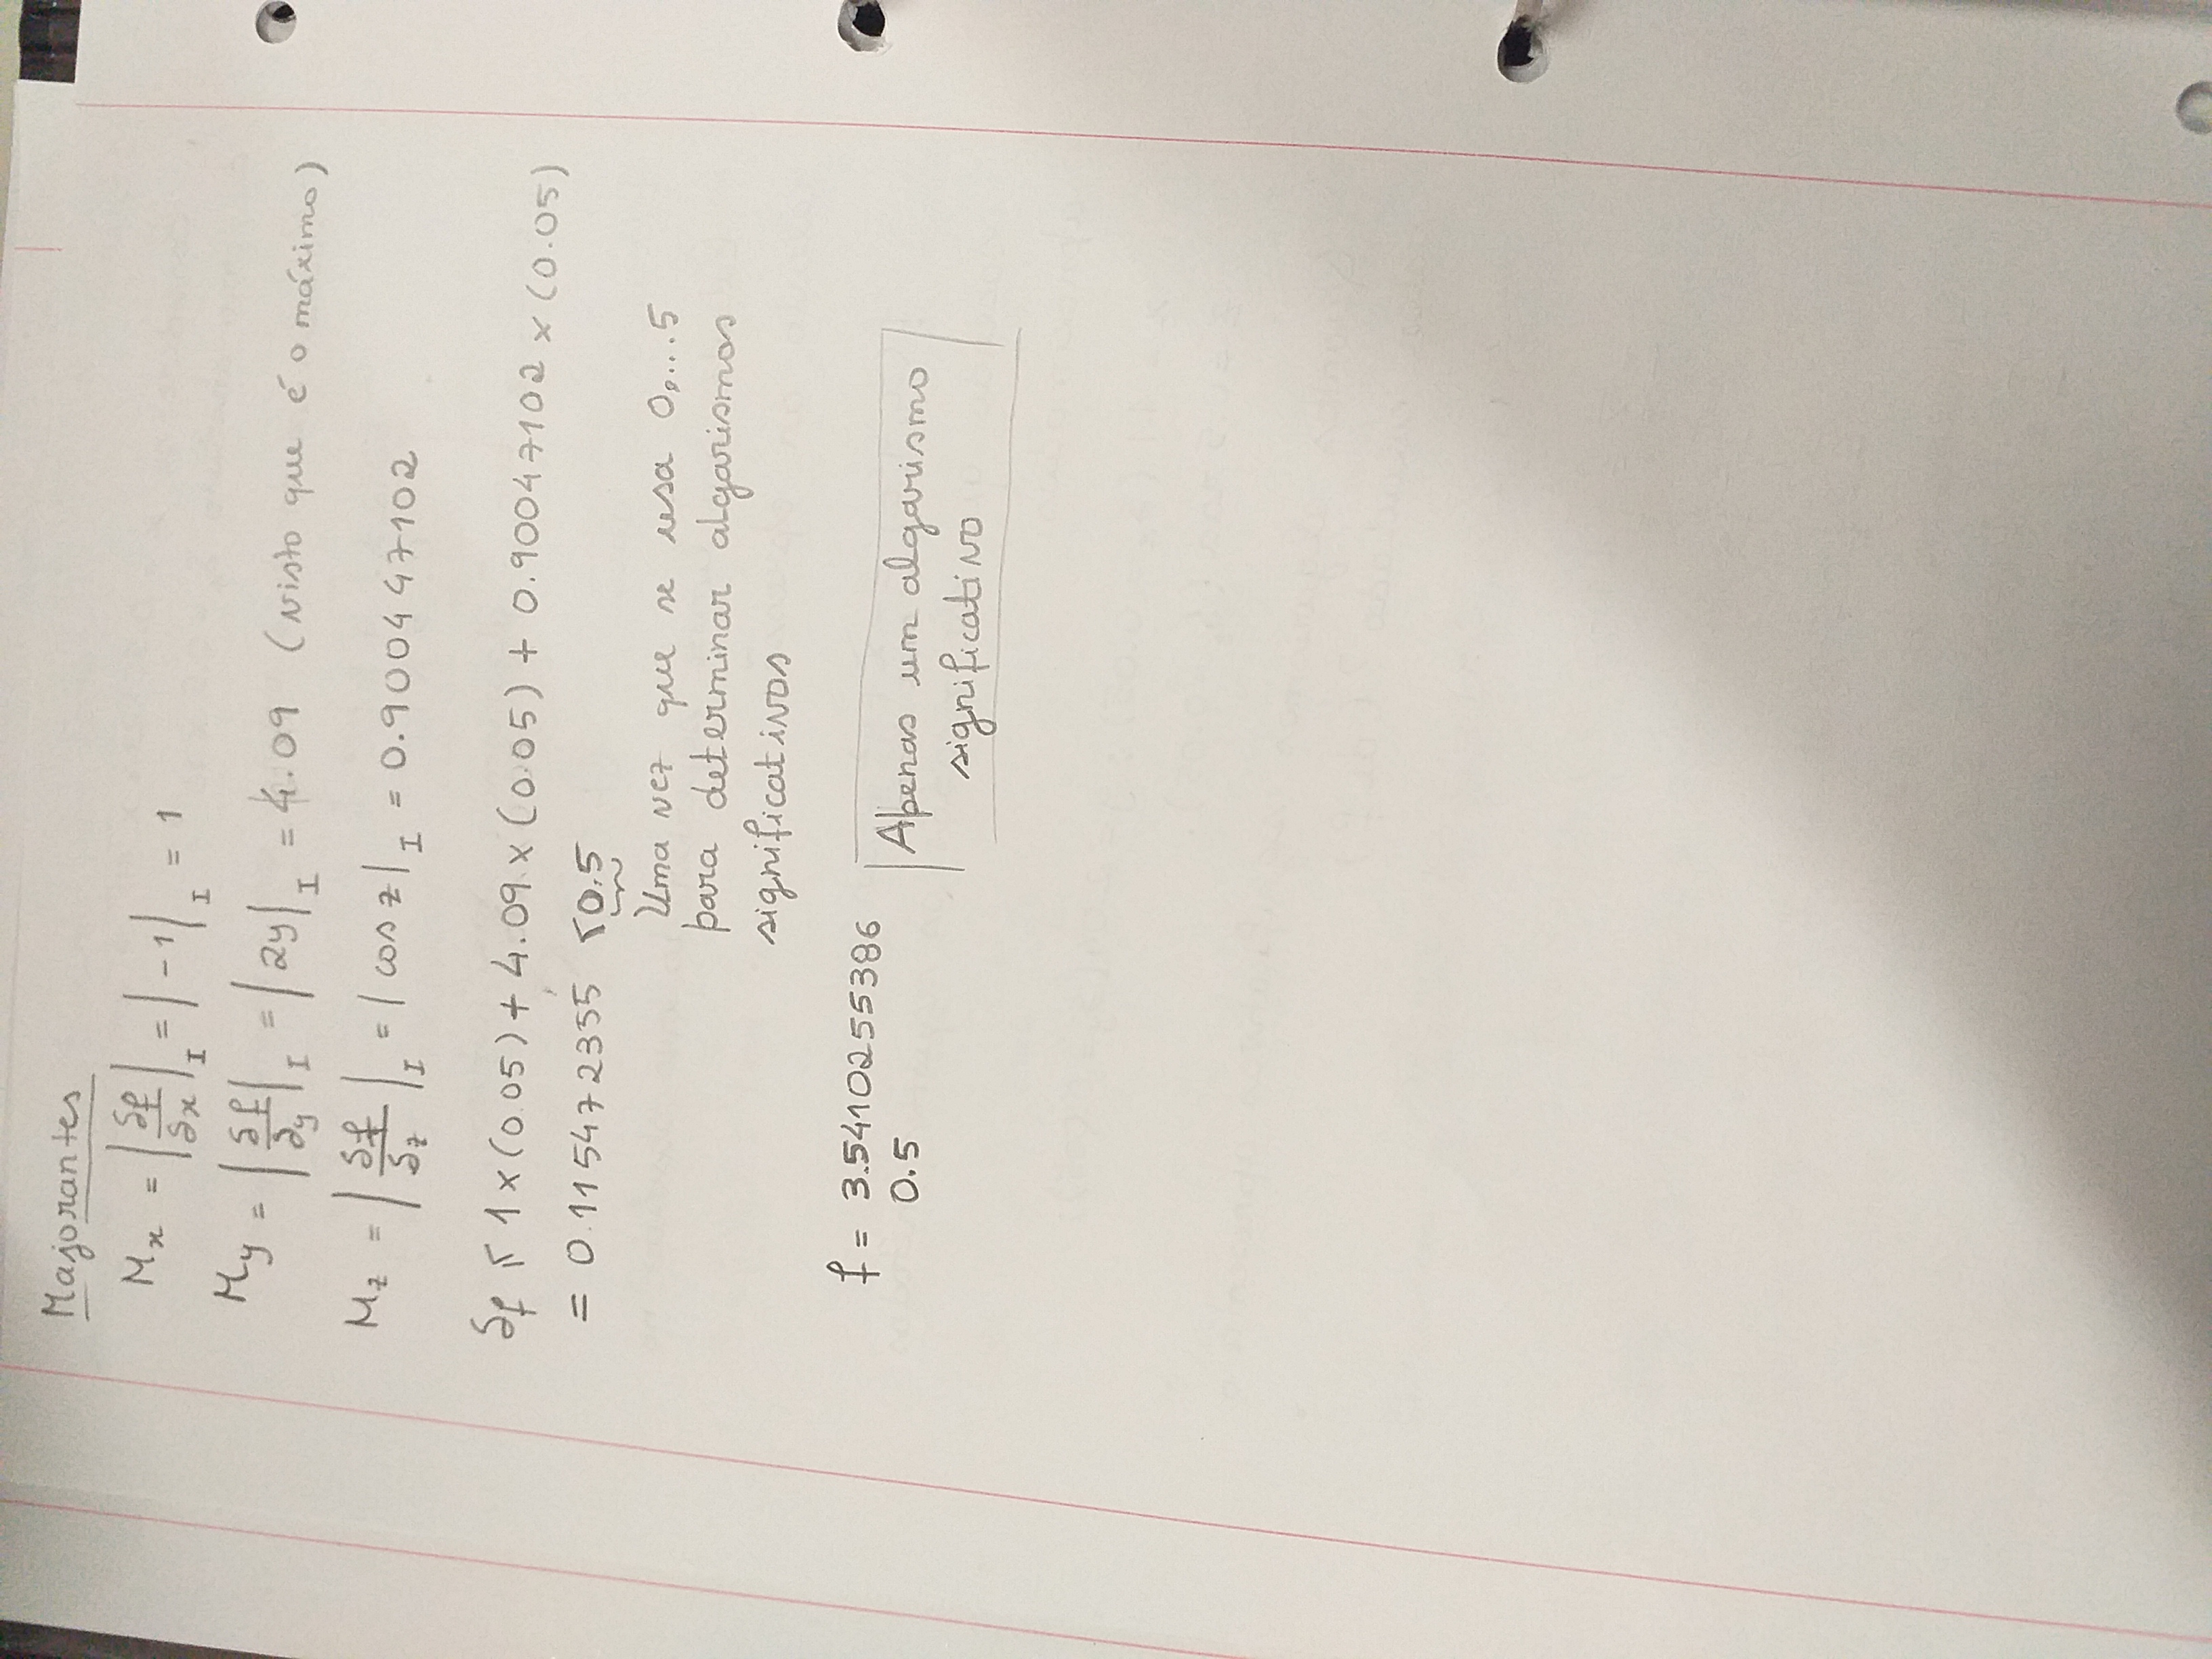 Majorantes
Mx = |δf/δx|I = |-1|I = 1
My = |δf/δy|I = |2y|I = 4.09 (visto que é o máximo)
Mz = |δf/δz|I = |cos z|I = 0.900447102
δf ≤ 1×(0.05) + 4.09×(0.05) + 0.90047102×(0.05)
= 0.115472355 ≤ 0.5
Uma vez que se usa 0,...5
para determinar algarismos
significativos
f = 3.5410255386
0.5
Apenas um algarismo
significativo